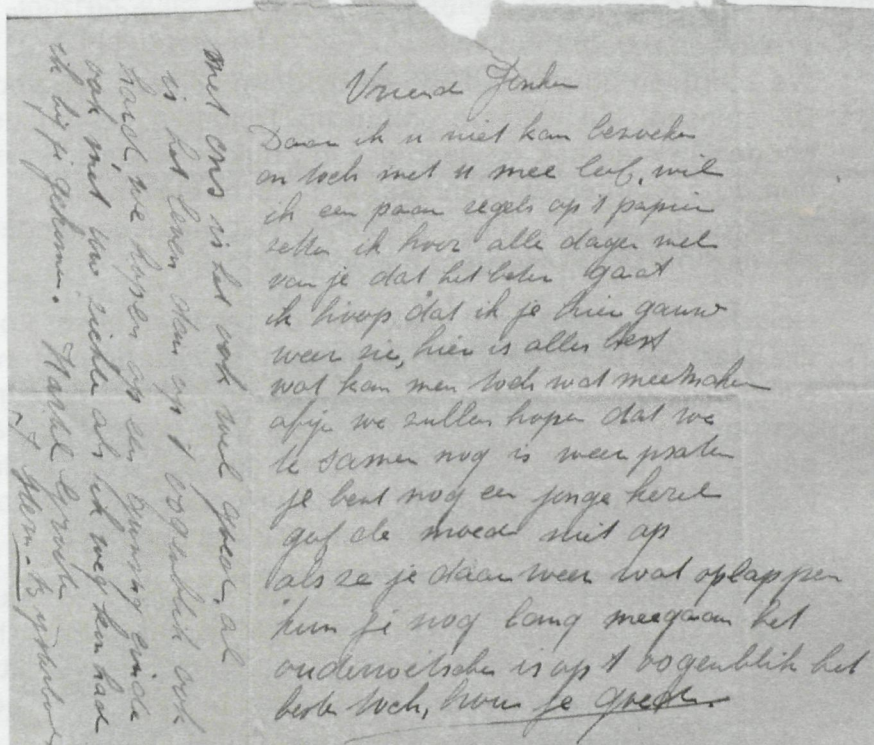 Vriend
Daar ik u niet kan bezoeken
en toch met u mee leef, wil
ik een paar regels op 't papier
zetten ik hoor alle dagen wel
van je dat het beter gaat
ik hoop dat ik je hier gauw
weer zie, hier is alles best
wat kan men toch wat meemaken
we zullen hopen dat we
te samen nog is weer praten
je bent nog een jonge kerel
gef de moed niet op
als ze je daar weer wat oplappen
kun je nog lang meegaan het
is op 't oogenblik het
beste toch, hou je goed.
met ons is het ook wel goed, al
is het leven dan op 't oogenblik ook
hard, we hopen op een gunstig einde
ook met uw ziekte als ik weg kon had
ik bij je gekomen. Hartel groeten